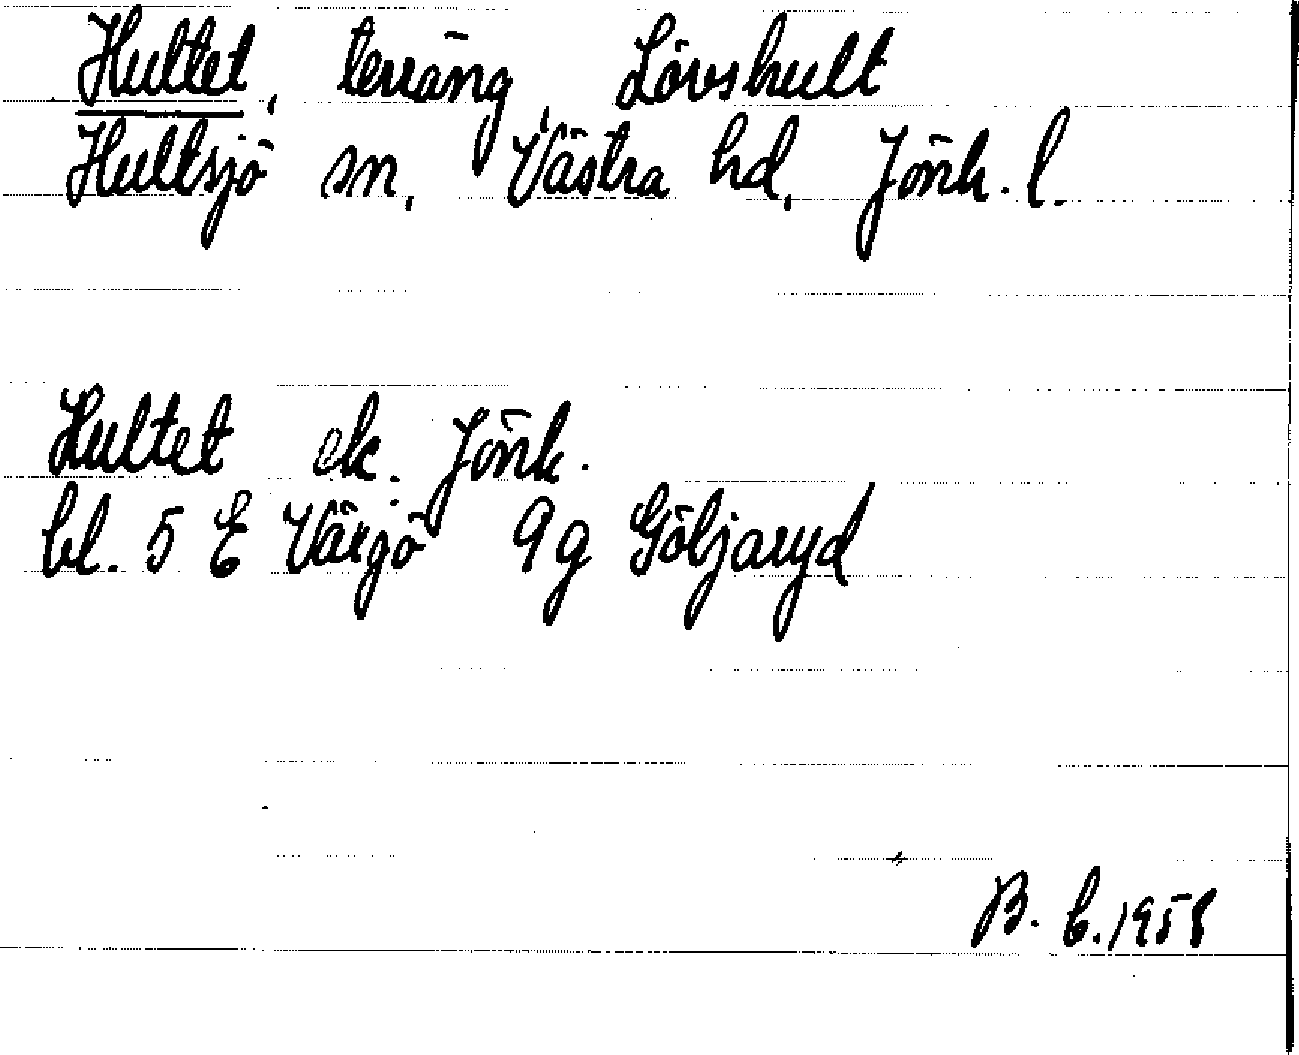 Hultet, terräng, Lövshult
Hultsjö sn, Västra hd, Jönk. l.
Hultet ek. Jönk.
bl. 5 E Värgö 9g Göljaryd
B. L. 1958